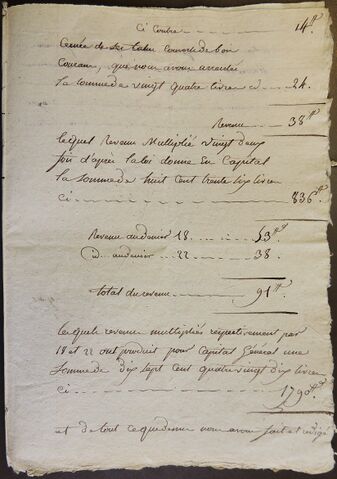 Ci Contre 14ᵗᵗ
Couverte de bon
que nous avons arrentée
la somme de vingt quatre livres ci 24.
Revenu 38ᵗᵗ
lequel Revenu Multiplié vingt deux
fois d'après la loi donne En Capital
la somme de huit Cent trente six livres
ci 836ᵗᵗ
Revenu au denier 18 53ᵗᵗ
au denier 22 38.
total du revenu 91ᵗᵗ
lesquels revenus multipliés respectivement par
18 et 22 ont produit pour Capital Général une
somme de dix sept cent quatre vingt dix livres
ci 1790ᵗᵗ
et de tout ce que dessus nous avons fait et rédigé